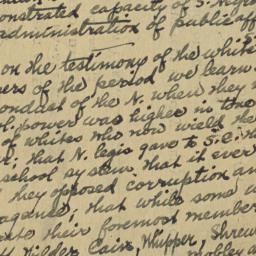 onstrated capacity of S. Negro
administration of public aff
on the testimony of the white
ers of the period we learn
onduct of the N. when they
l. powers was higher in tone
of whites who now wield the
; that N. legis gave to S.C. the
school system that it ever
they opposed corruption an
agance; that while some w
their foremost member
Cain, Whipper, Shrew
Mobley a